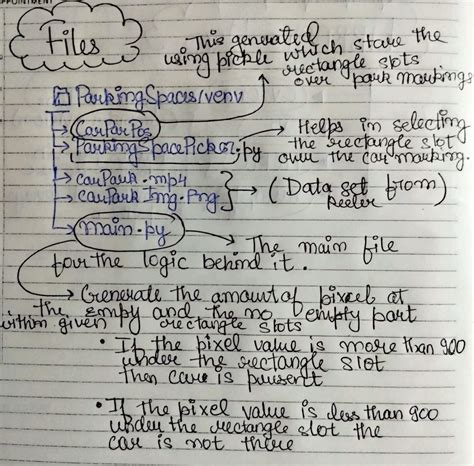 PPOINTMENT
Files
This generated
using pickle which store the
rectangle slots
over park markings
ParkingSpaces/venv
CarParPos
ParkingSpacePicker.py
Helps in selecting
the rectangle slot
over the car marking.
carPark.mp4
carPark Img.Png
(Data set from)
main.py
The main file
for the logic behind it.
Generate the amount of pixel at
the empy and the no empty part
within given rectangle slots
• If the pixel value is more than 900
under the rectangle slot
then care is present
• If the pixel value is less than 900
under the rectangle slot the
car is not there